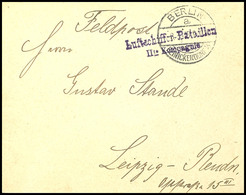 Feldpost
BERLIN
a
Luftschiffer-Bataillon
IIte Kompagnie.
Gustav Staude
Leipzig-Reudn.